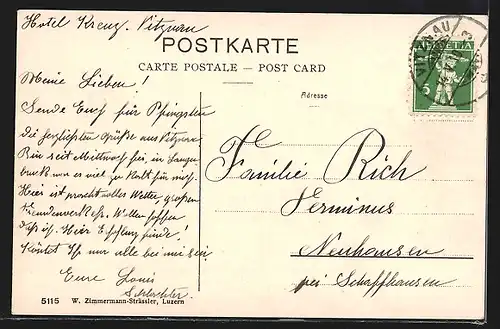 Hotel Kreuz, Vitznau
POSTKARTE
CARTE POSTALE — POST CARD
Adresse
HELVETIA
5
VITZNAU
Meine Lieben!
Sende Euch für Pfingsten
die herzlichsten Grüße aus Vitznau
Bin seit Mittwoch hier, in
war es viel zu kalt für mich.
Hier ist prachtvolles Wetter, großen
Fremdenverkehr. Wollen hoffen
daß ich hier finde!
Könntet Ihr nur alle bei mir sein
Eure Louis
Familie Rich
Terminus
Neuhausen
bei Schaffhausen
5115 W. Zimmermann-Strässler, Luzern